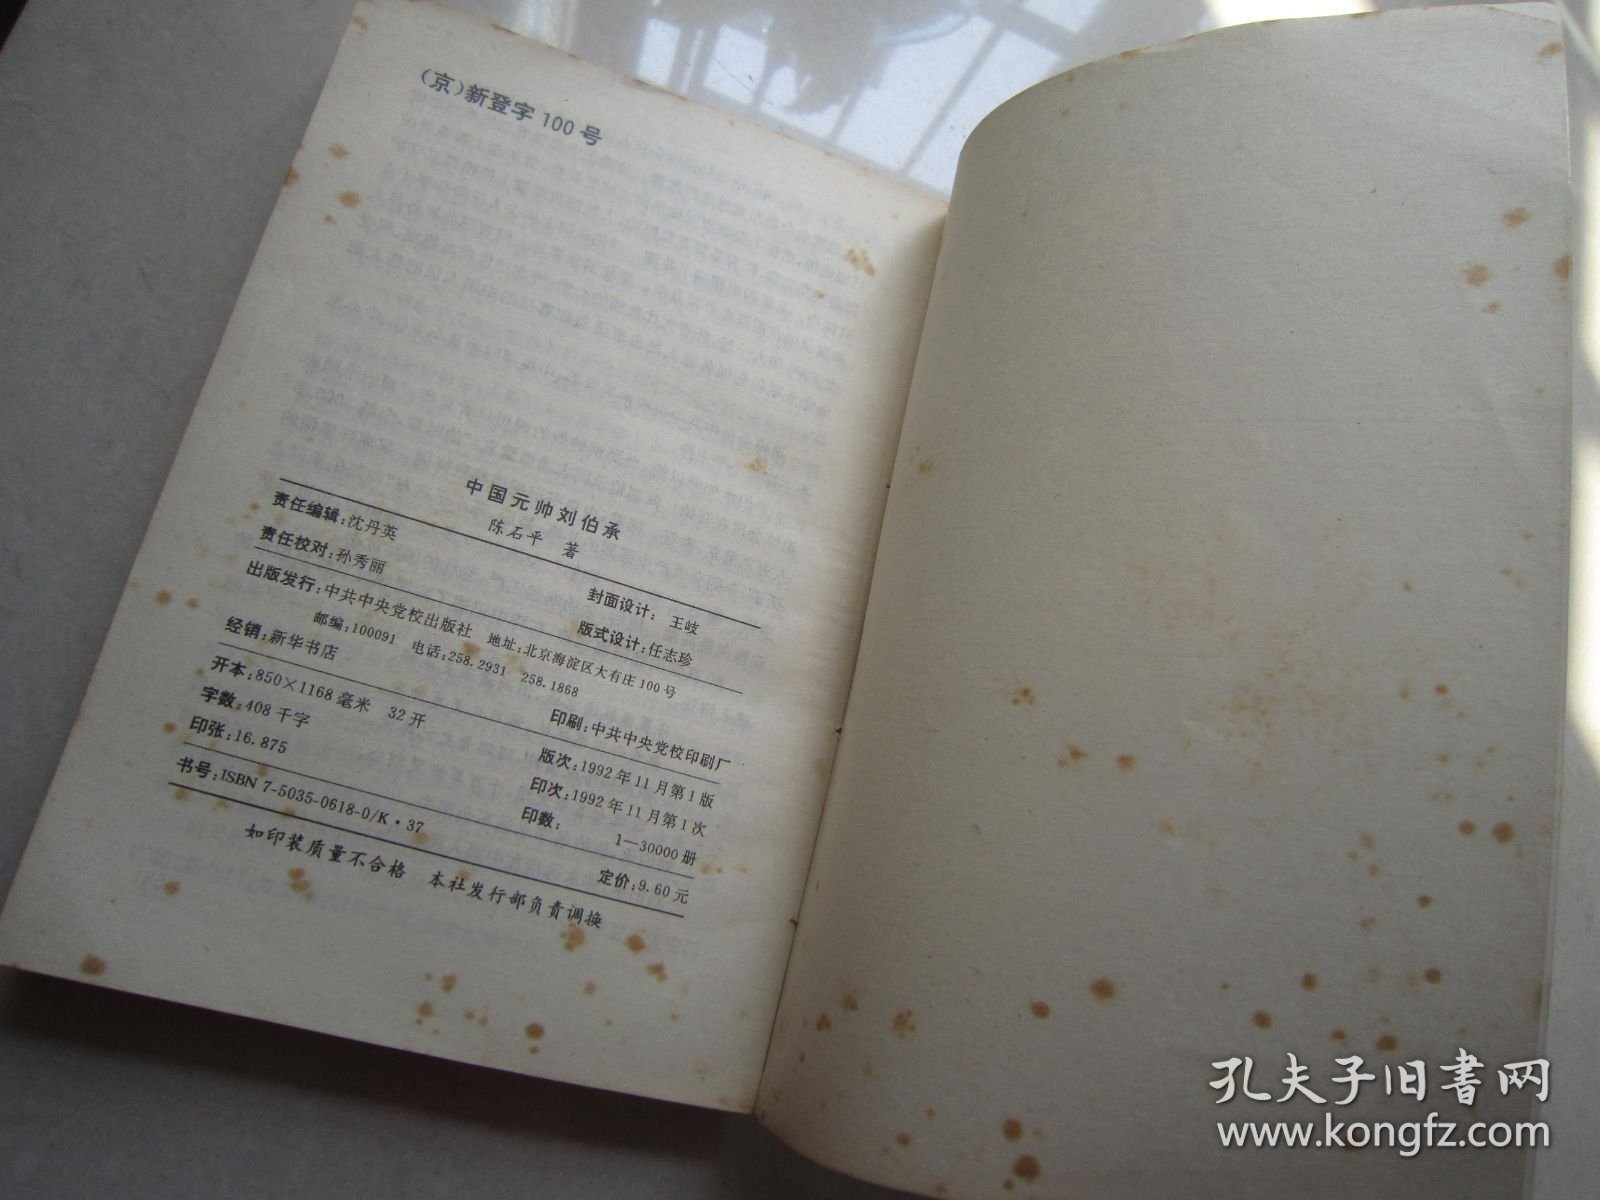 （京）新登字100号
中国元帅刘伯承
陈石平 著
责任编辑：沈丹英 封面设计：王岐
责任校对：孙秀丽 版式设计：任志珍
出版发行：中共中央党校出版社 地址：北京海淀区大有庄100号
邮编：100091 电话：258.2931 258.1868
经销：新华书店 印刷：中共中央党校印刷厂
开本：850×1168毫米 32开 版次：1992年11月第1版
字数：408千字 印次：1992年11月第1次
印张：16.875 印数：1—30000册
书号：ISBN 7-5035-0618-0/K·37 定价：9.60元
如印装质量不合格 本社发行部负责调换
孔夫子旧书网
www.kongfz.com